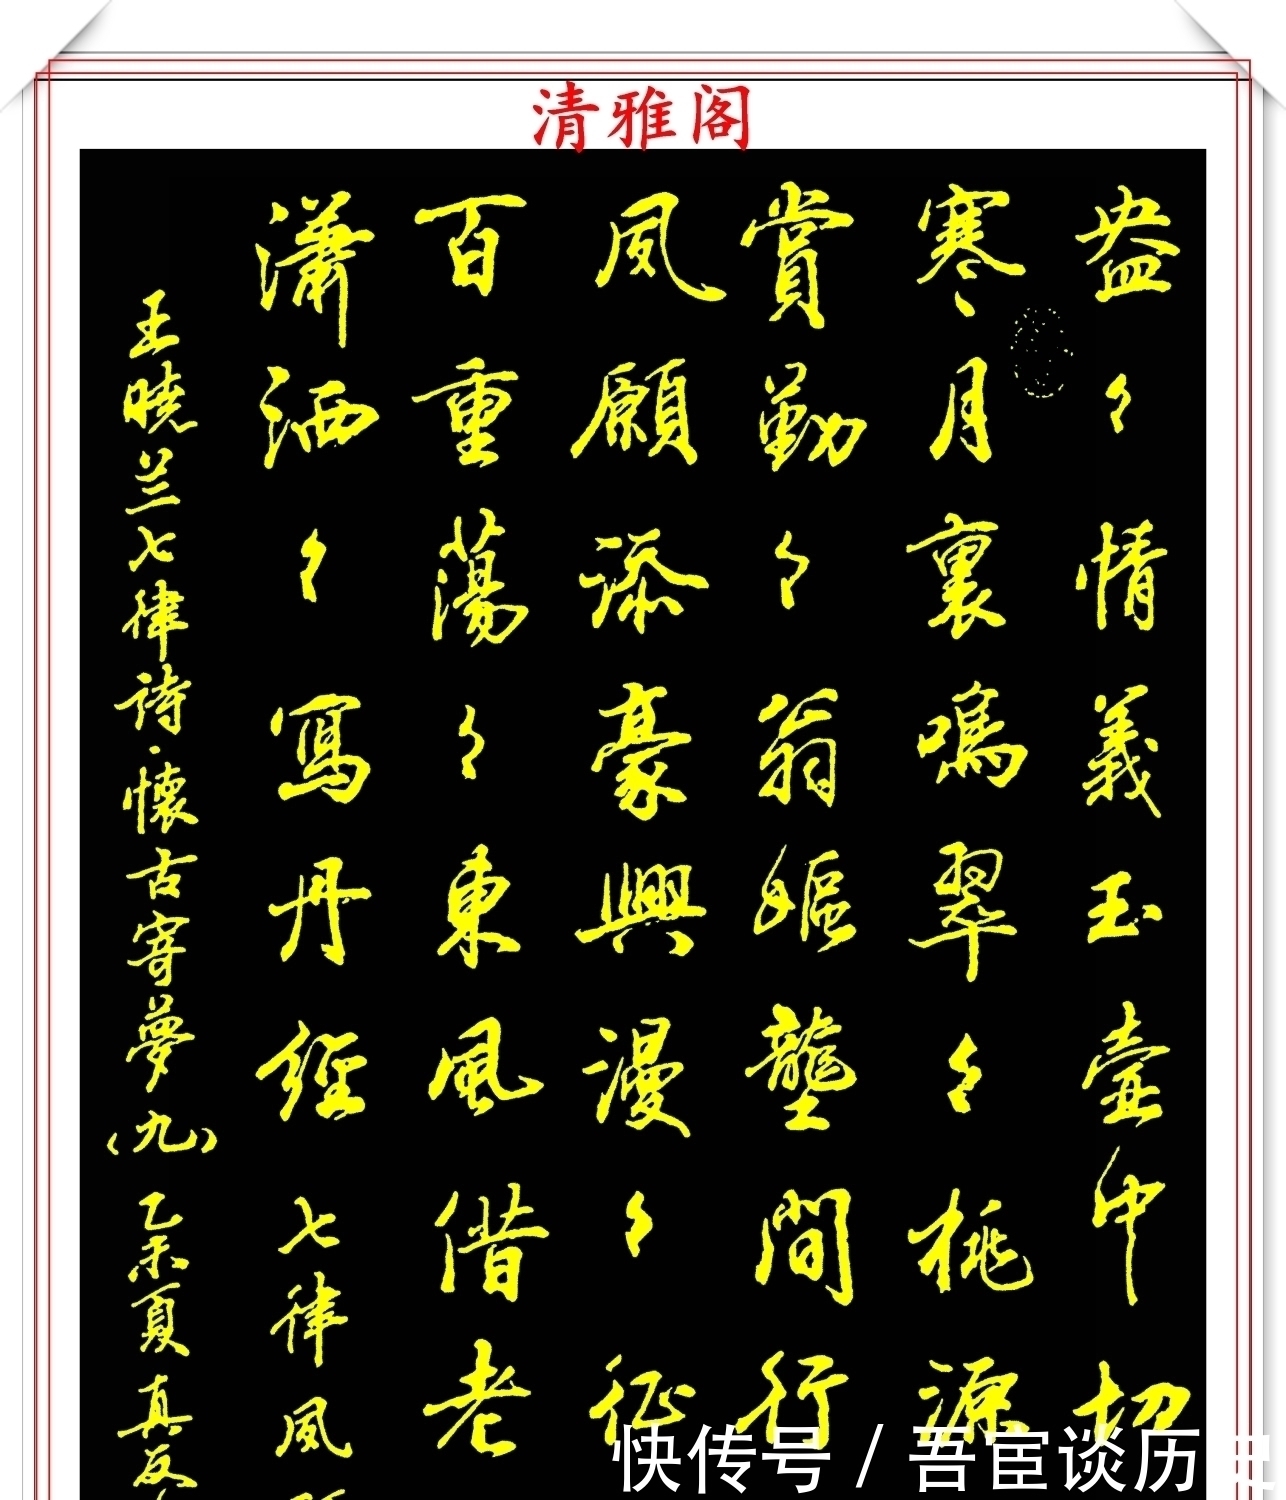 清雅阁
盎〻情義玉壺中切
寒月裏鳴翠〻桃源
賞勤〻翁嫗壟間行
凤願添豪興漫〻征
百重蕩〻東風借老
瀟洒〻寫丹經 七律 凤
王曉兰七律诗·懷古寄夢(九) 乙未夏真
快传号/吾宦谈历史